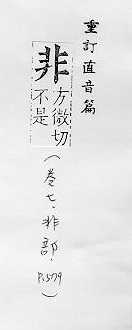 重訂直音篇
非方微切
不是
(卷七.非部.
P.579)